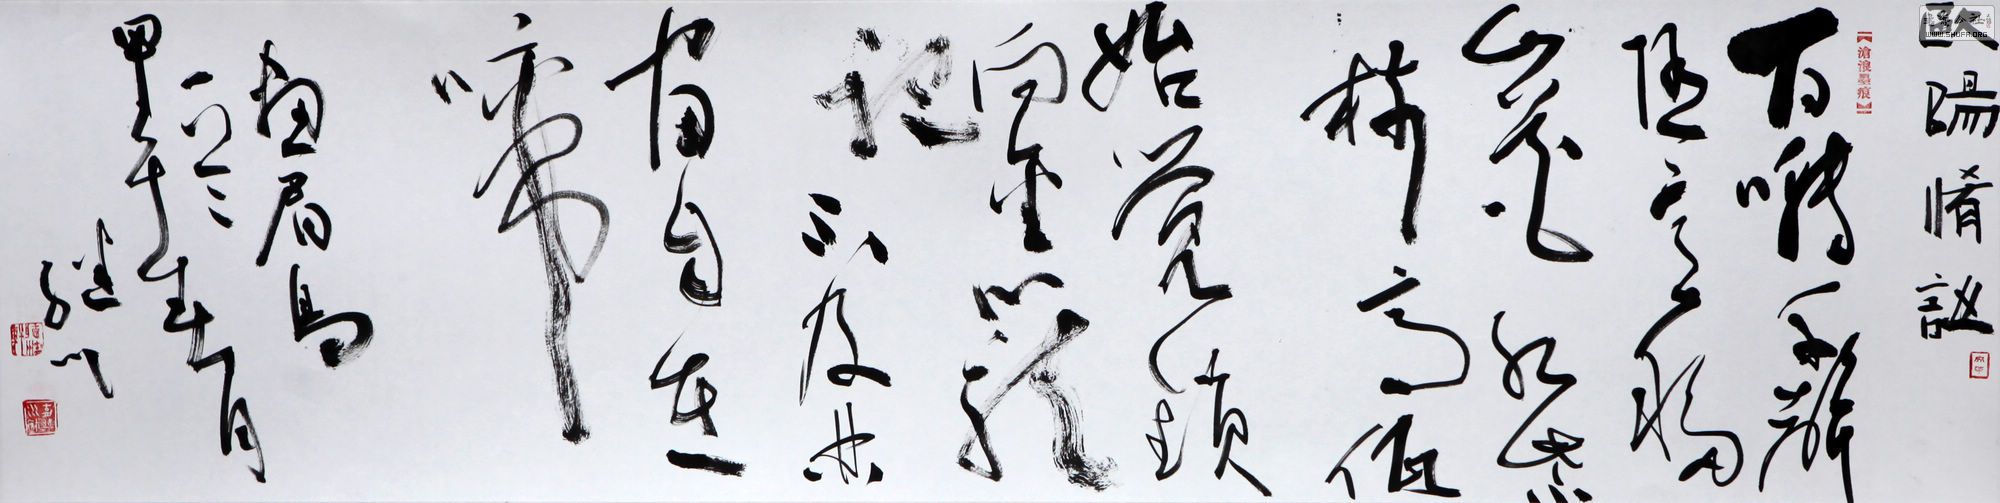 歐陽脩詠
【滄浪墨痕】
百囀千聲
随意移
山花紅紫
樹高低
始覺鎖
向金籠
聽不及林
間自在
啼
畫眉鳥
甲午春月
继川
WWW.SHUFA.ORG